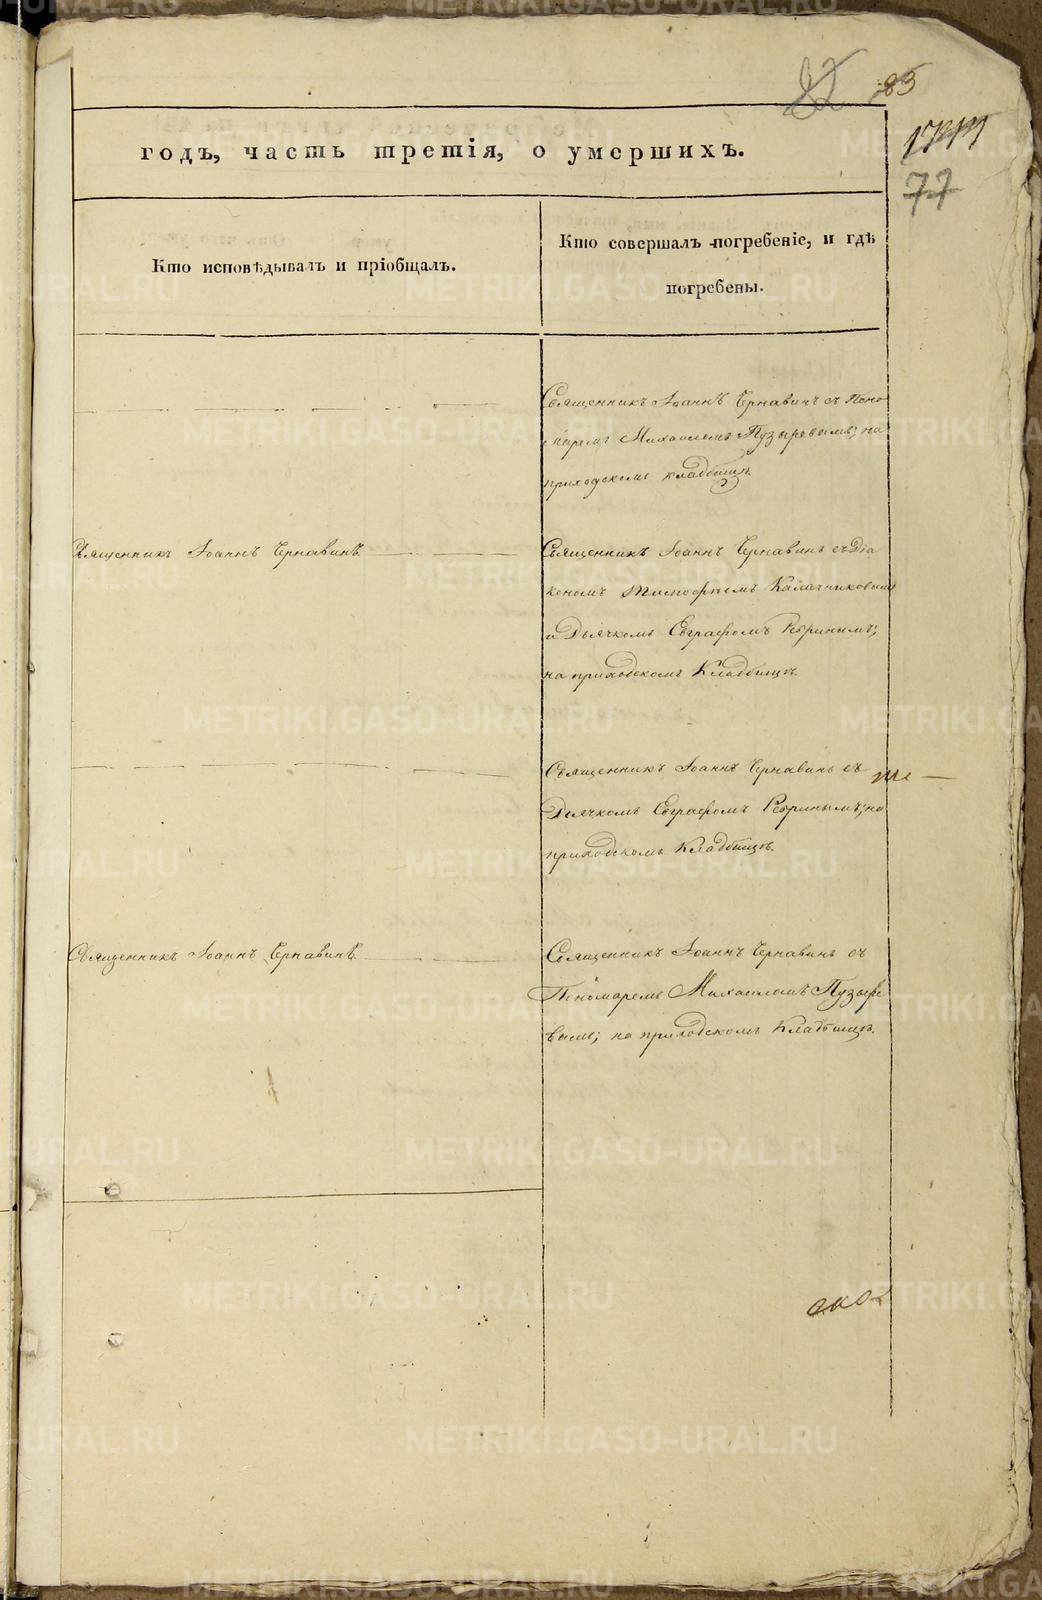 82 83
годъ, часть третія, о умершихъ.
77
Кто исповѣдывалъ и пріобщалъ.
Кто совершалъ погребеніе, и гдѣ
погребены.
Священникъ Іоаннъ Чернавинъ съ Поно
маремъ Михаиломъ Пузыревымъ; на
приходскомъ кладбищѣ.
Священникъ Іоаннъ Чернавинъ
Священникъ Іоаннъ Чернавинъ съ Діа
кономъ Тимофеемъ Калачниковымъ
и Дьячкомъ Евграфомъ Ребринымъ;
на приходскомъ Кладбищѣ.
Священникъ Іоаннъ Чернавинъ съ
Дьячкомъ Евграфомъ Ребринымъ; на
приходскомъ Кладбищѣ.
Священникъ Іоаннъ Чернавинъ
Священникъ Іоаннъ Чернавинъ съ
Пономаремъ Михаиломъ Пузыре
вымъ; на приходскомъ Кладбищѣ.
METRIKI.GASO-URAL.RU